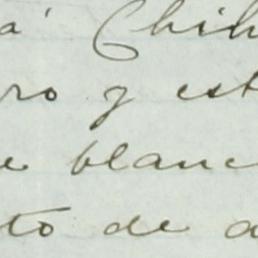 a Chih
ro y est
e blanc
to de a